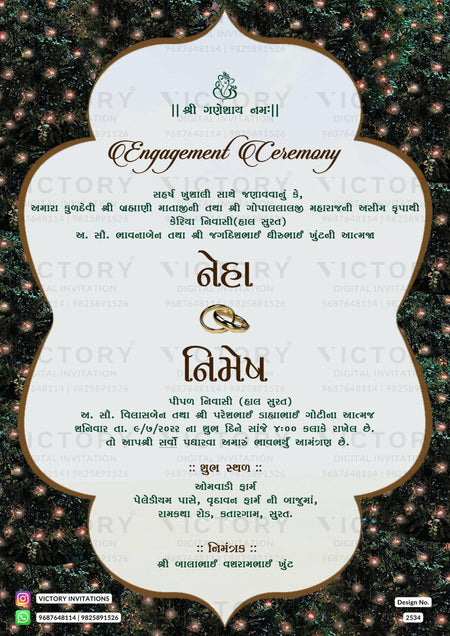 || શ્રી ગણેશાય નમઃ||
Engagement Ceremony
સહર્ષ ખુશાલી સાથે જણાવવાનું કે,
અમારા કુળદેવી શ્રી બ્રહ્માણી માતાજીની તથા શ્રી ગોપાલલાલજી મહારાજની અસીમ કૃપાથી
કેરિયા નિવાસી(હાલ સુરત)
અ. સૌ. ભાવનાબેન તથા શ્રી જગદિશભાઈ ધીરુભાઈ ખુંટની આત્મજા
નેહા
નિમેષ
પીપળ નિવાસી (હાલ સુરત)
અ. સૌ. વિલાસબેન તથા શ્રી પરેશભાઈ ડાહ્યાભાઈ ગોટીના આત્મજ
શનિવાર તા. ૯/૭/૨૦૨૨ ના શુભ દિને સાંજે ૪:૦૦ કલાકે રાખેલ છે.
તો આપશ્રી સર્વો પધારવા અમારું ભાવભર્યું આમંત્રણ છે.
:: શુભ સ્થળ ::
ઓમવાડી ફાર્મ
પેલેડીયમ પાસે, વૃંદાવન ફાર્મ ની બાજુમાં,
રામકથા રોડ, કતારગામ, સુરત.
:: નિમંત્રક ::
શ્રી બાલાભાઈ વશરામભાઈ ખુંટ
VICTORY INVITATIONS
9687648114 | 9825891526
Design No.
2534
VICTORY
DIGITAL INVITATION
9687648114 | 9825891526